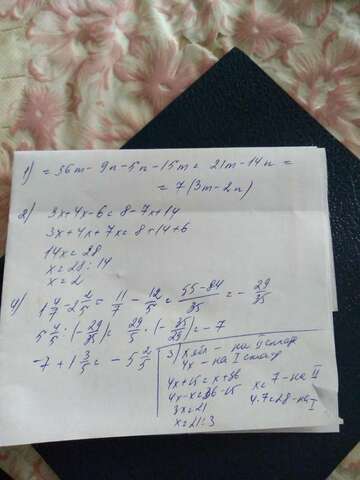 1) = 36m - 9n - 5n - 15m = 21m - 14n =
= 7 (3m - 2n)
2) 3x+4x-6 = 8-7x+14
3x+4x+7x = 8+14+6
14x = 28
x = 28 : 14
x = 2
4) 1 4/7 - 2 2/5 = 11/7 - 12/5 = 55-84/35 = - 29/35
5 4/5 · (- 29/35) = 29/5 · (- 35/29) = -7
-7 + 1 3/5 = - 5 2/5
3) x - на II склад
4x - на I склад
4x+15 = x+36
4x-x = 36-15
3x = 21
x = 21:3
x = 7 - на II
4·7 = 28 - на I